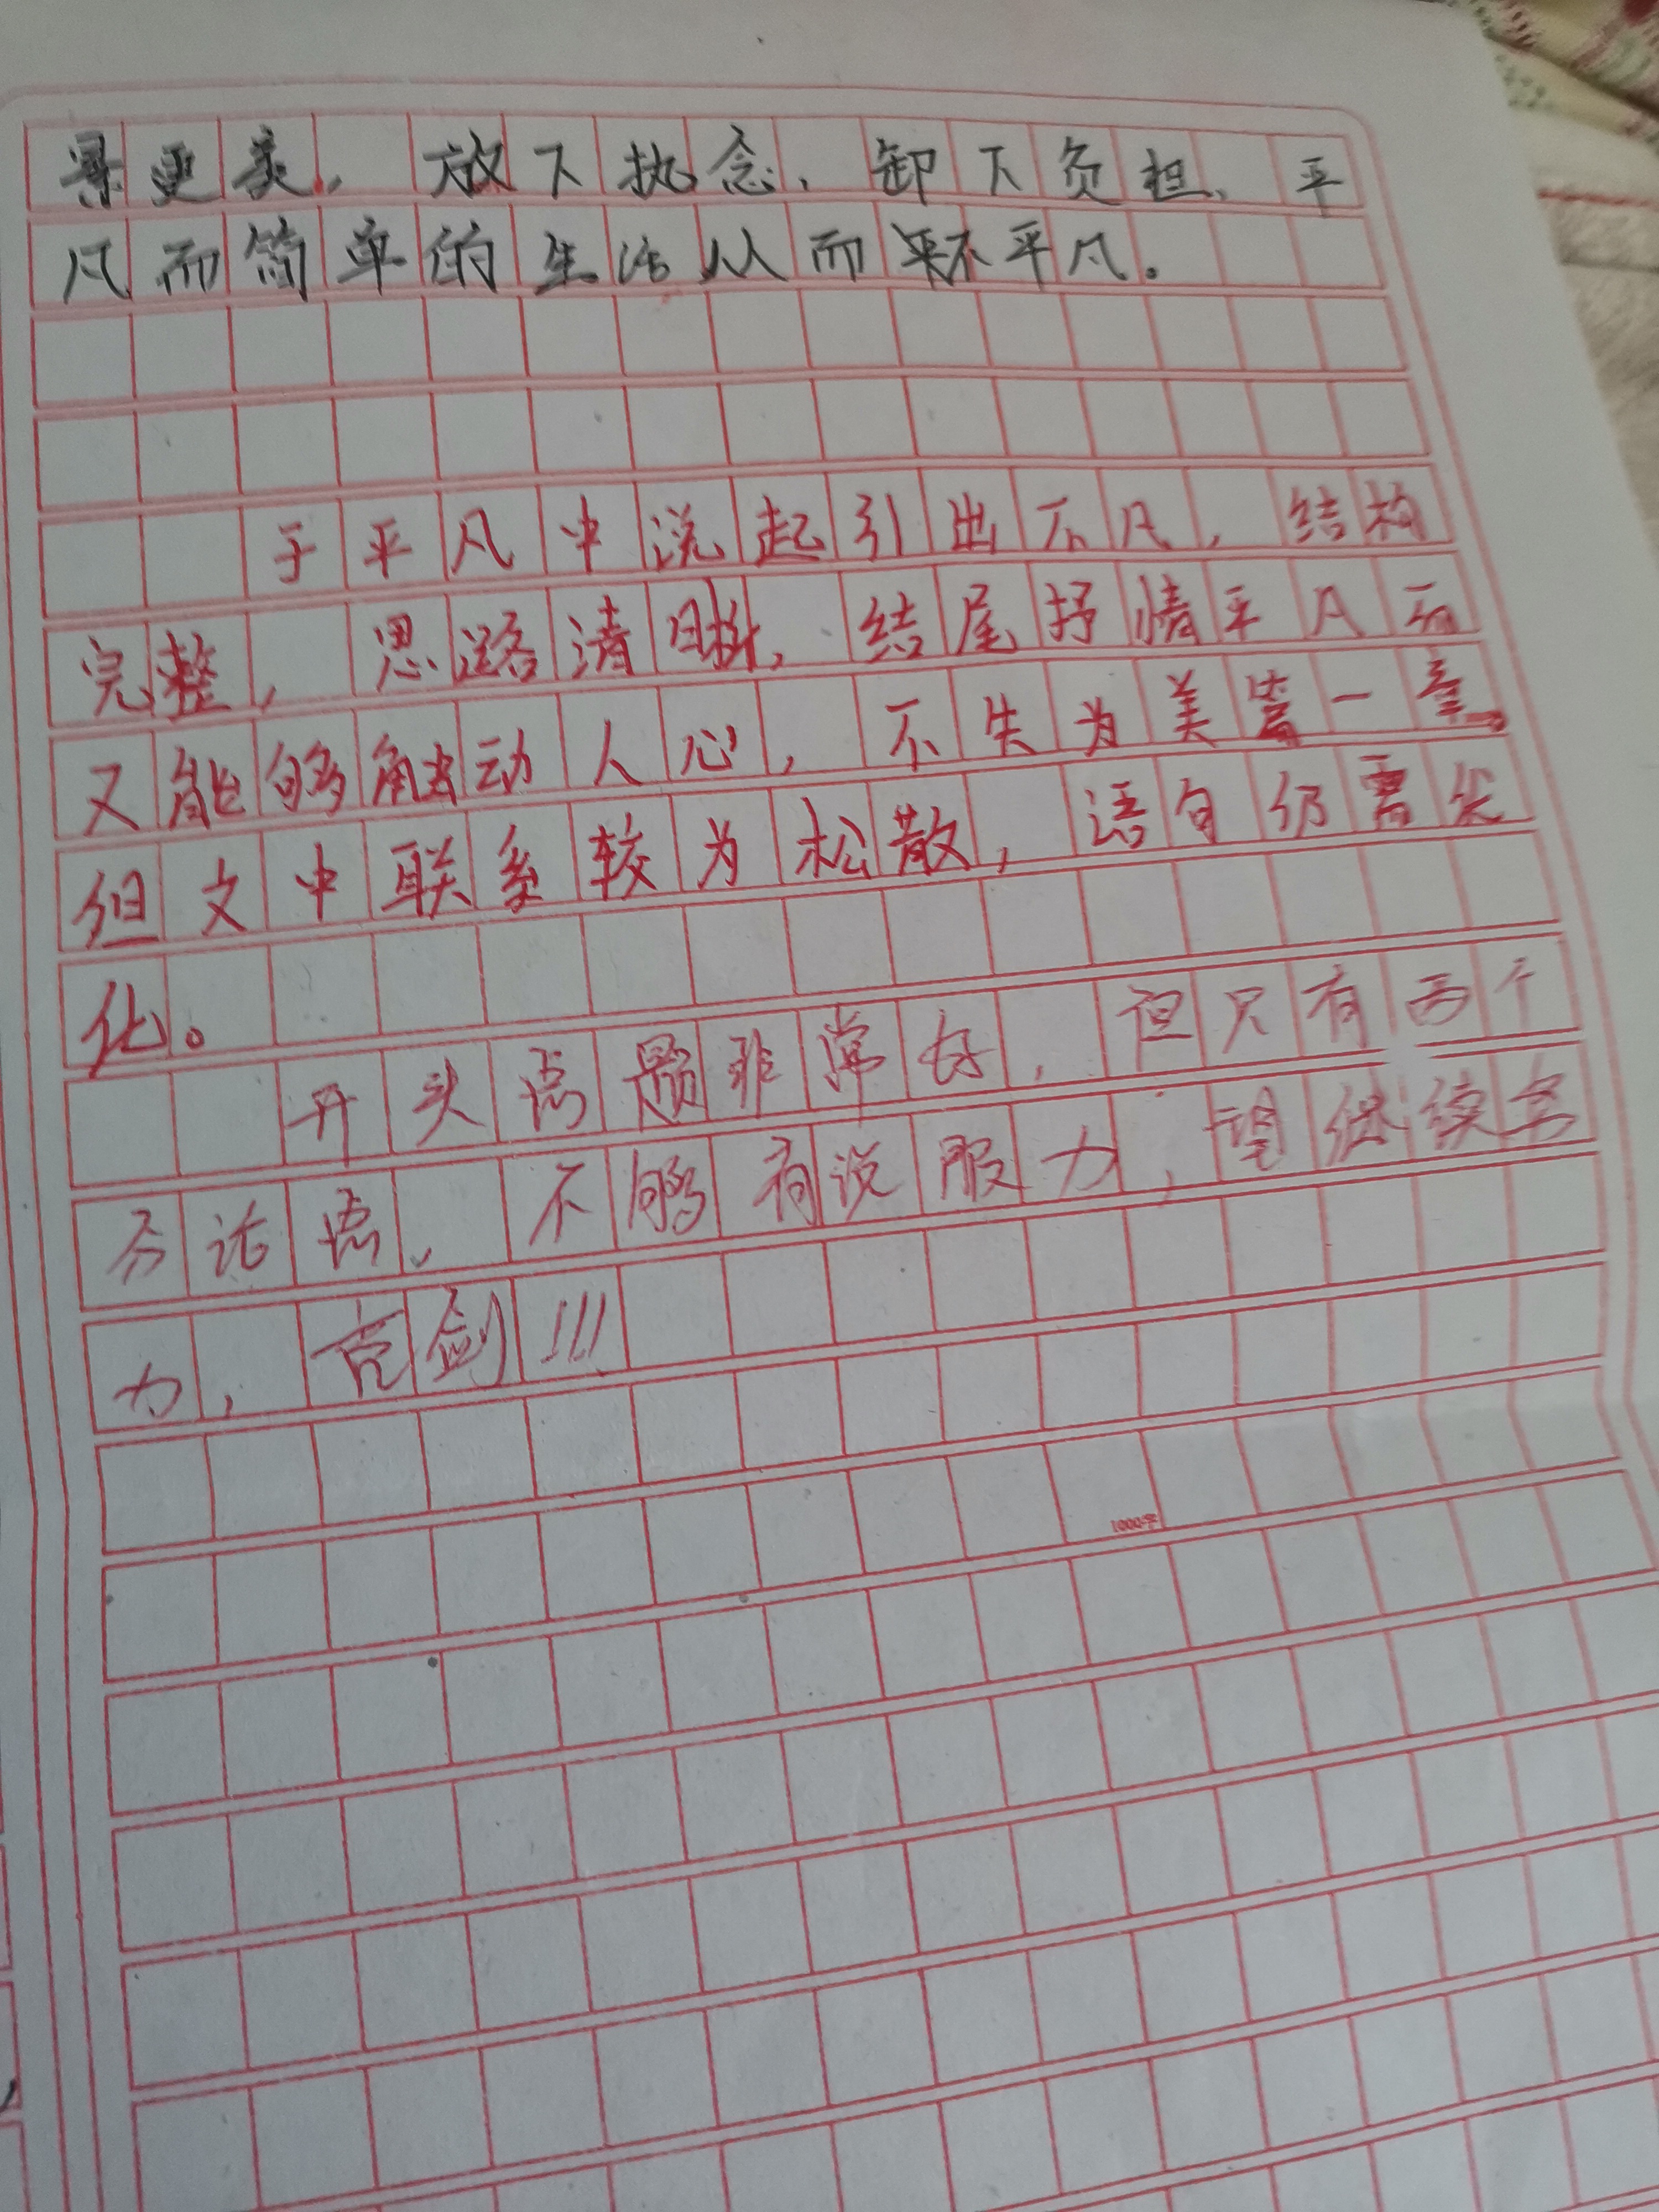 景更美，放下执念，卸下负担，平
凡而简单的生活从而来不平凡。
于平凡中说起引出不凡，结构
完整，思路清晰，结尾抒情平凡而
又能够触动人心，不失为美篇一章。
但文中联系较为松散，语句仍需优
化。
开头点题非常好，但只有两个
分论点，不够有说服力，望继续努
力，亮剑！！！
1000字